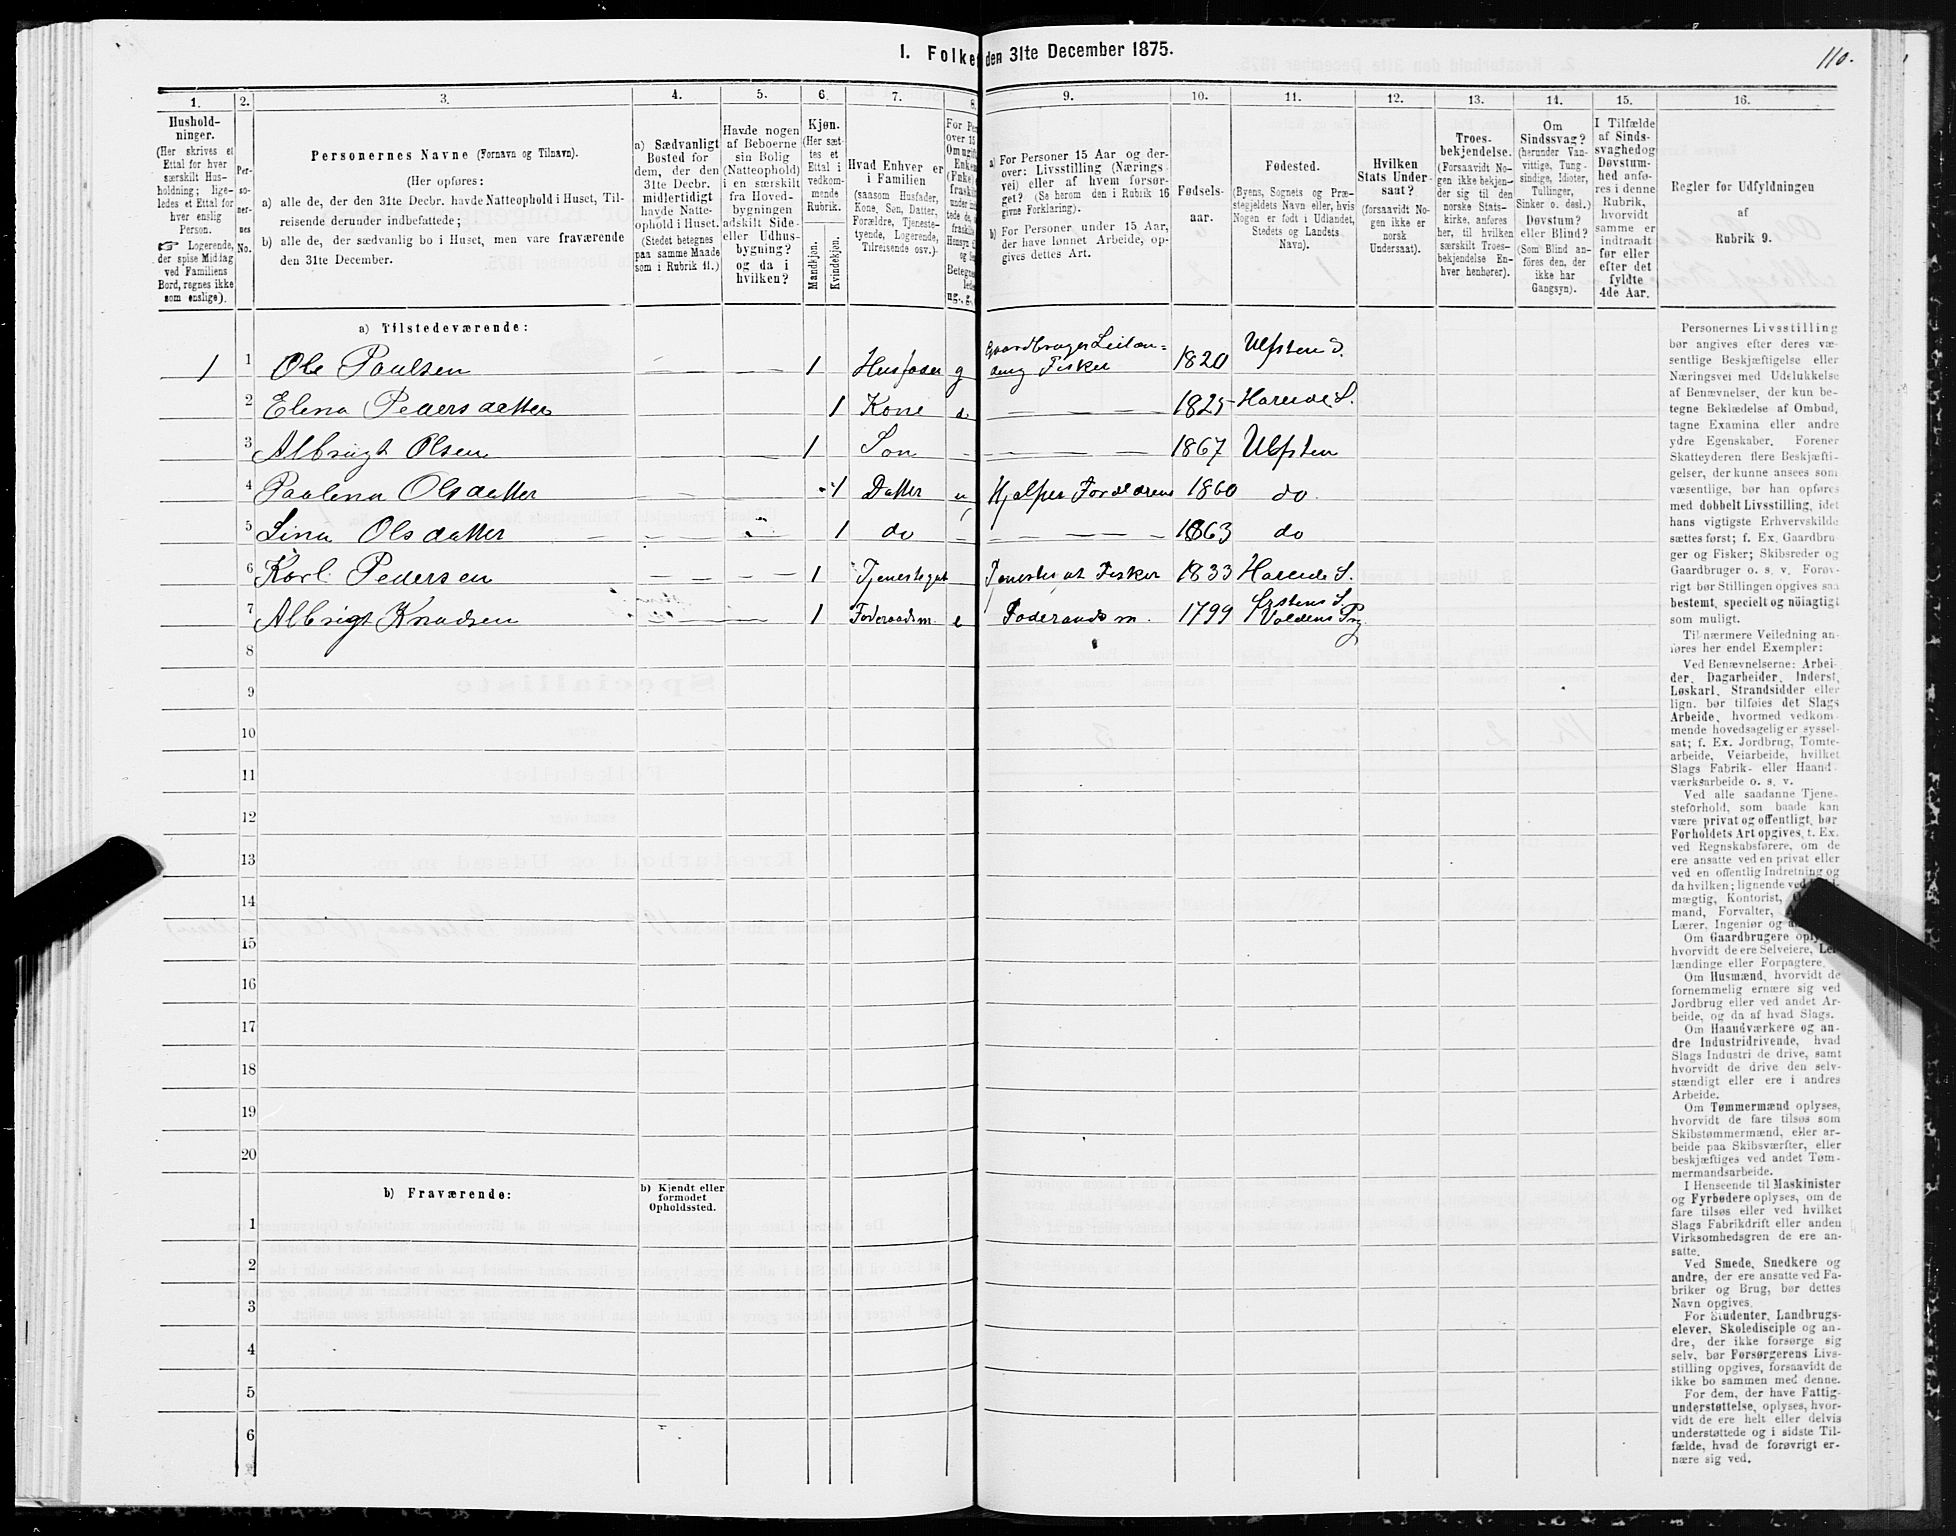 I. Folke den 31te December 1875.
110.
1. 2. 3. 4. 5. 6. 7. 8. 9. 10. 11. 12. 13. 14. 15. 16.
Hushold-
ninger.
(Her skrives et
Ettal for hver
særskilt Hus-
holdning; lige-
ledes et Ettal for
hver enslig
Person.
☞ Logerende,
der spise Middag
ved Familiens
Bord, regnes ikke
som enslige).
Per-
so-
ner-
nes
No.
Personernes Navne (Fornavn og Tilnavn).
(Her opføres:
a) alle de, der den 31te Decbr. havde Natteophold i Huset, Til-
reisende derunder indbefattede;
b) alle de, der sædvanlig bo i Huset, men vare fraværende
den 31te December.
a) Sædvanligt
Bosted for
dem, der den
31te Decbr.
midlertidigt
havde Natte-
ophold i Huset.
(Stedet betegnes
paa samme Maade
som i Rubrik 11.)
Havde nogen
af Beboerne
sin Bolig
(Natteophold)
i en særskilt
fra Hoved-
bygningen
adskilt Side-
eller Udhus-
bygning?
og da i
hvilken?
Kjøn.
(Her sæt-
tes et
Ettal i
vedkom-
mende
Rubrik.
Mandkjøn.
Kvindekjøn.
Hvad Enhver er
i Familien
(saasom Husfader,
Kone, Søn, Datter,
Forældre, Tjeneste-
tyende, Logerende,
Tilreisende osv.)
For Per
over 15
Om ugift
Enke
(Fnke)
fraskil
under in
tede de,
fraskill
Hensyn
og
Betegne
lede
ug., g.,
a) For Personer 15 Aar og der-
over: Livsstilling (Nærings-
vei) eller af hvem forsør-
get? (Se herom den i Rubrik 16
givne Forklaring).
b) For Personer under 15 Aar,
der have lønnet Arbeide, op-
gives dettes Art.
Fødsels-
aar.
Fødested.
(Byens, Sognets og Præ-
stegjeldets Navn eller, hvis
Nogen er født i Udlandet,
Stedets og Landets
Navn).
Hvilken
Stats Under-
saat?
(forsaavidt No-
gen ikke er
norsk
Undersaat).
Troes-
bekjendelse.
(Forsaavidt No-
gen ikke bekjen-
der sig til den
norske Stats-
kirke, anføres
her, til hvilken
særskilt Troes-
bekjendelse En-
hver henhører).
Om
Sindssvag?
(herunder Van-
vittige, Tung-
sindige, Idioter,
Tullinger,
Sinker o. desl.)
Døvstum?
eller Blind?
(Som Blind an-
føres den, der
ikke har
Gangsyn).
I Tilfælde
af Sinds-
svaghedog
Døvstum-
hed anfø-
res i denne
Rubrik,
hvorvidt
samme er
indtraadt
før eller
efter det
fyldte
4de Aar.
Regler for Udfyldningen
af
Rubrik 9.
a) Tilstedeværende:
1 1 Ole Paulsen — — 1 Husfader g Gaardbruger Leilæn-
ding Fisker 1820 Ulfsten S.
2 Elena Pedersdatter 1 Kone 1825 Hareide S.
3 Albrigt Olsen 1 Søn 1867 Ulfsten
4 Paulena Olsdatter 1 Datter Hjelper Forældrene 1860 do.
5 Lina Olsdatter 1 do 1863 do
6 Karl Pedersen 1 Tjenestegut Tjenestegut Fisker 1833 Hareide S.
7 Albrigt Knudsen 1 Føderaadsm. e Føderaadsm. 1799 Ørstens S.
Voldens Prg
8
9
10
11
12
13
14
15
16
17
18
19
20
b) Fraværende:
b) Kjendt eller
formodet
Opholdssted.
1
2
3
4
5
6
Personernes Livsstilling
bør angives efter deres væ-
sentlige Beskjæftigelse eller
Næringsvei med Udelukkelse
af Benævnelser, der kun be-
tegne Beklædelse af Ombud,
tagne Examina eller andre
ydre Egenskaber. Forener
Skatteyderen flere Beskjæfti-
gelser, der kunne ansees som
væsentlige, bør han opføres
med dobbelt Livsstilling, idet
hans vigtigste Erhvervskilde
sættes først; f. Ex. Gaardbru-
ger og Fisker; Skibsreder og
Gaardbruger o. s. v. Forøv-
rigt bør Stillingen opgives saa
bestemt, specielt og nöiagtigt
som muligt.
Til nærmere Veiledning an-
føres her endel Exempler:
Ved Benævnelserne: Arbei-
der, Dagarbeider, Inderst,
Løskarl, Strandsidder eller
lign. bør tilføies det Slags
Arbeide, hvormed vedkom-
mende hovedsagelig er syssel-
sat; f. Ex. Jordbrug, Tomte-
arbeide, Veiarbeide, hvilket
Slags Fabrik- eller Haand-
værksarbeide o. s. v.
Ved alle saadanne Tjene-
steforhold, som baade kan
være privat og offentligt, bør
Forholdets Art opgives, t. Ex.
ved Regnskabsførere, om de
ere ansatte ved en privat eller
ved en offentlig Indretning og
da hvilken; lignende ved
mægtig, Kontorist,
mand, Forvalter,
Lærer, Ingeniør og
Om Gaardbrugere
hvorvidt de ere Selveiere, Lei-
lændinge eller Forpagtere.
Om Husmænd, hvorvidt de
fornemmelig ernære sig ved
Jordbrug eller ved andet Ar-
beide, og da af hvad Slags.
Om Haandværkere og an-
dre Industridrivende, hvad
Slags Industri de drive, samt
hvorvidt de drive den selv-
stændigt eller ere i andres
Arbeide.
Om Tømmermænd oplyses,
hvorvidt de fare tilsøs som
Skibstømmermænd, eller ar-
beide paa Skibsværfter, eller
beskjæftiges ved andet Tøm-
mermandsarbeide.
I Henseende til Maskinister
og Fyrbødere oplyses, om de
fare tilsøs eller ved hvilket
Slags Fabrikdrift eller anden
Virksomhedsgren de ere an-
satte.
Ved Smede, Snedkere og
andre, der ere ansatte ved Fa-
briker og Brug, bør dettes
Navn opgives.
For Studenter, Landbrugs-
elever, Skoledisciple og an-
dre, der ikke forsørge sig
selv, bør Forsørgerens Livs-
stilling opgives, forsaavidt de
ikke bo sammen med denne.
For dem, der have Fattig-
understøttelse, oplyses, hvor-
vidt de ere helt eller delvis
understøttede og i sidste Til-
fælde, hvad de forøvrigt er-
nære sig ved.